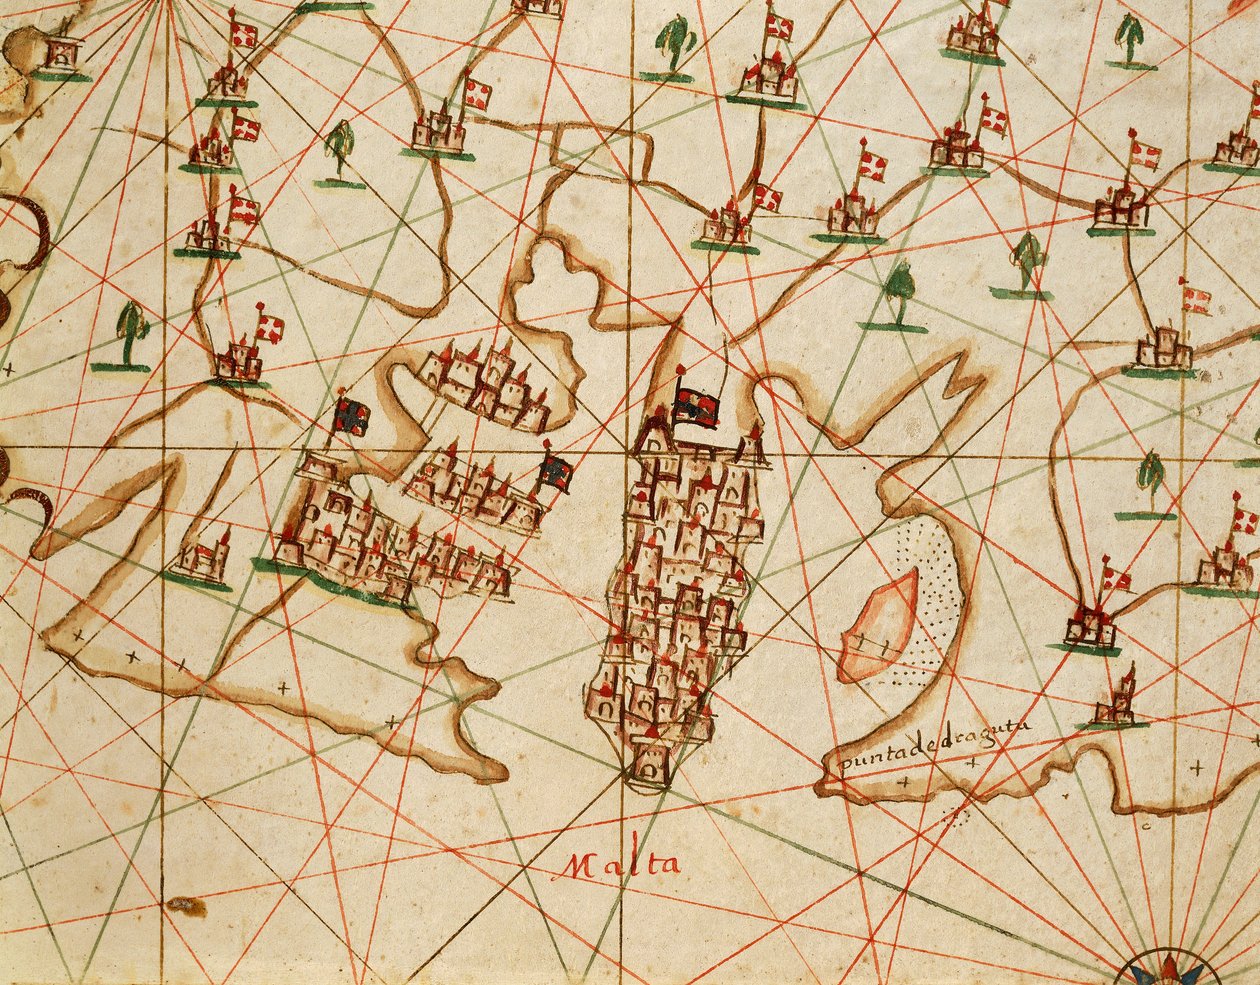 punta de draguta
Malta